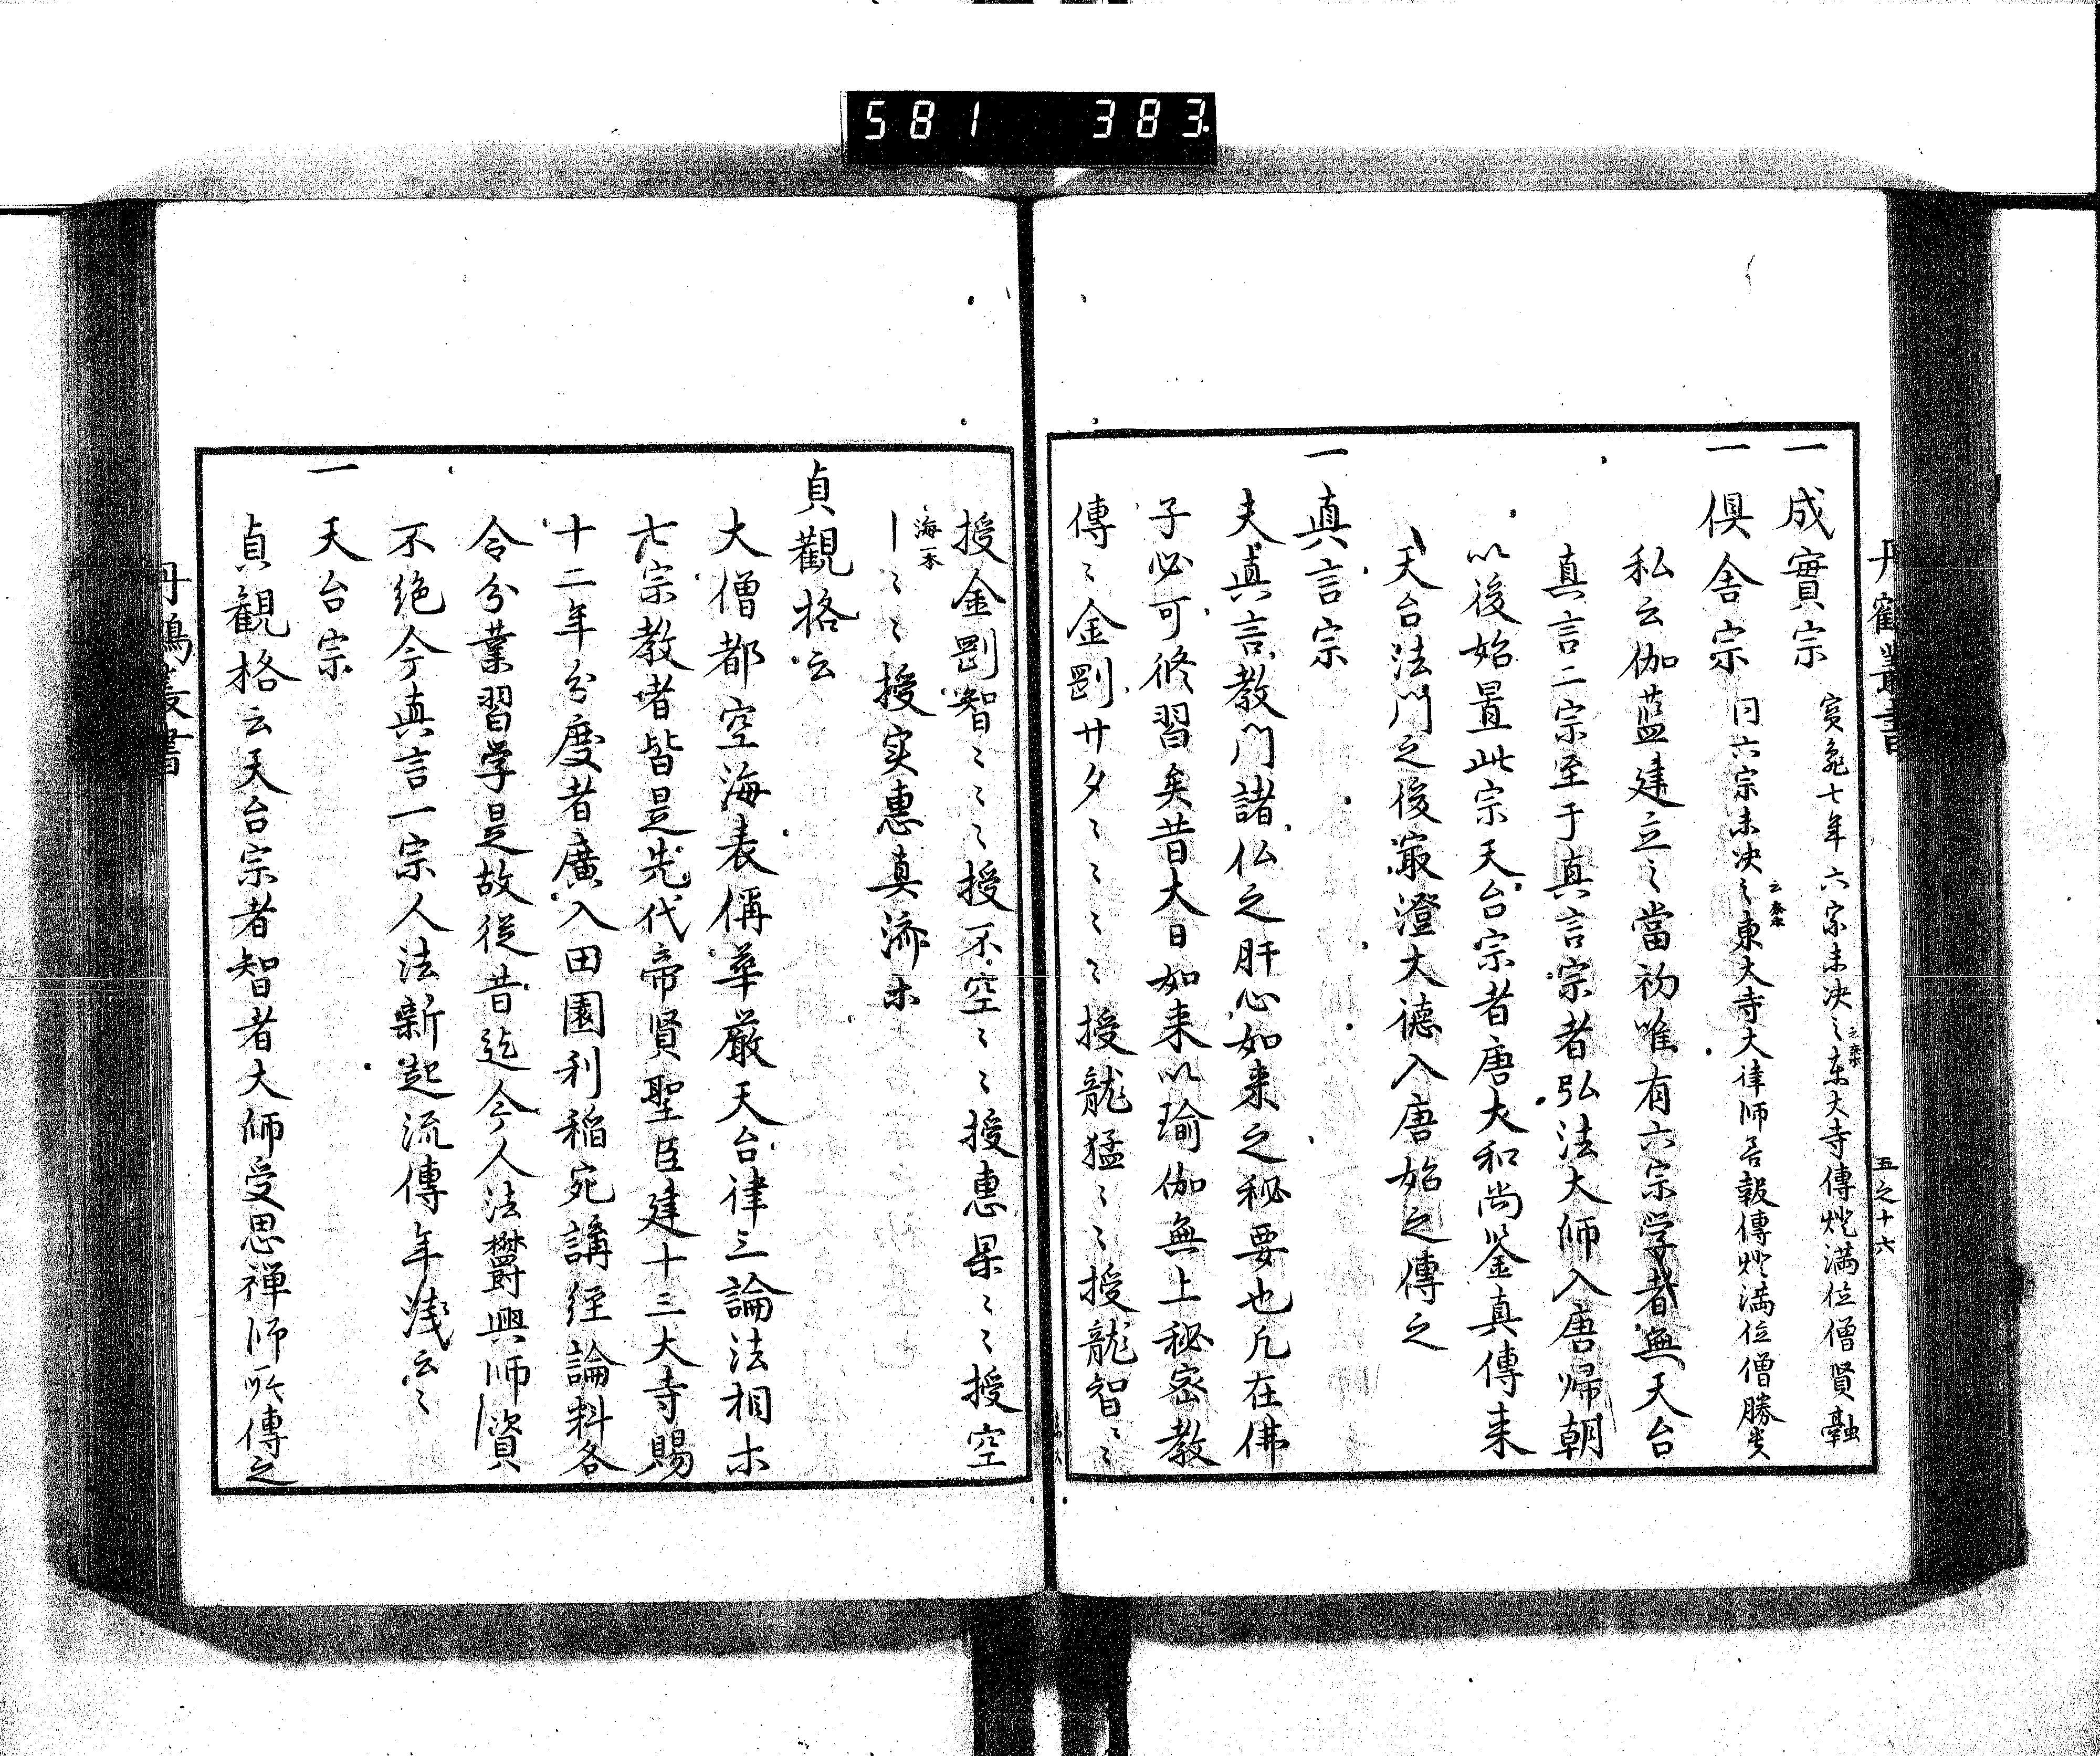 581 383
丹鶴叢書
五之十六
一成實宗 寳龜七年六宗未决〻東大寺傳燈満位僧賢融
一倶舎宗 同六宗未决〻東大寺大律師 報傳燈満位僧勝貴
私云伽藍建立〻當初唯有六宗学者無天台
真言二宗至于真言宗者弘法大師入唐帰朝
以後始置此宗天台宗者唐大和尚鉴真傳来
天台法門之後最澄大徳入唐始之傳之
一真言宗
夫真言教門諸仏之肝心如来之秘要也凡在佛
子必可修習矣昔大日如来以瑜伽無上秘密教
傳〻金剛廾夕〻〻〻〻授龍猛〻〻授龍智〻〻
授金剛智〻〻〻授不空〻〻授惠杲〻〻授空
海一本
丨〻〻授实惠真済木
貞觀格云
大僧都空海表偁華厳天台律三論法相木
七宗教者皆是先代帝賢聖臣建十三大寺賜
十二年分度者廣入田園利稲宛講經論料各
令分業習学是故従昔迄今人法欝興師資
不絶今真言一宗人法新起流傳年浅云〻
一天台宗
貞観格云天台宗者智者大師受思禅師所傳之
丹鶴叢書